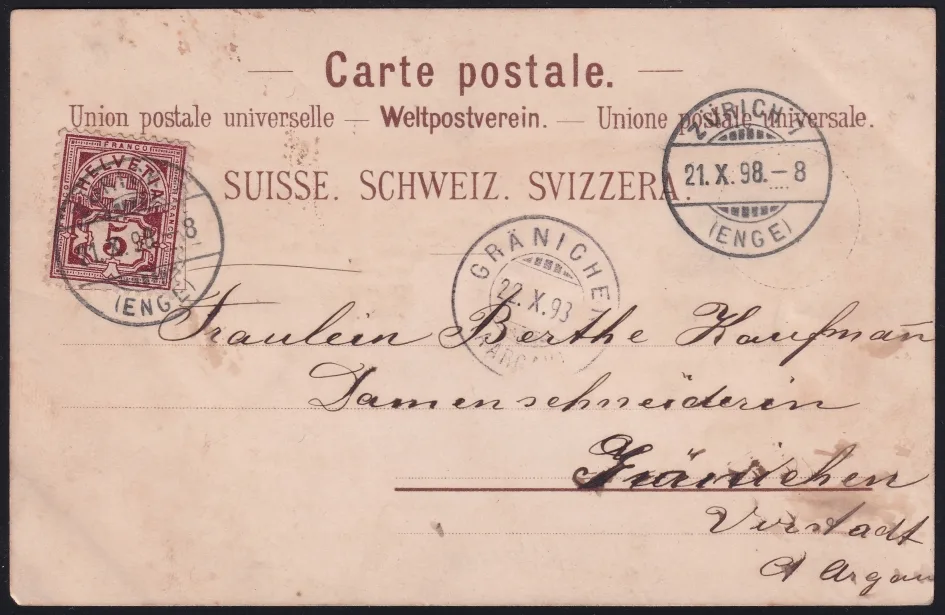 — Carte postale. —
Union postale universelle — Weltpostverein. — Unione postale universale.
SUISSE. SCHWEIZ. SVIZZERA.
FRANCO
HELVETIA
5
21.X.98.-8
(ENGE)
ZÜRICH 1
21.X.98.-8
(ENGE)
GRÄNICHE
22.X.93
Fräulein Berthe Kaufmañ
Damenschneiderin
Gränichen
Vorstadt
Ct Argau